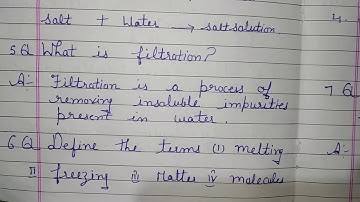 salt + water → salt solution
5 Q What is filtration?
A:- Filtration is a process of
removing insoluble impurities
present in water.
6 Q Define the terms (i) melting
ii freezing iii Matter iv molecules
4.
7 Q
A:-